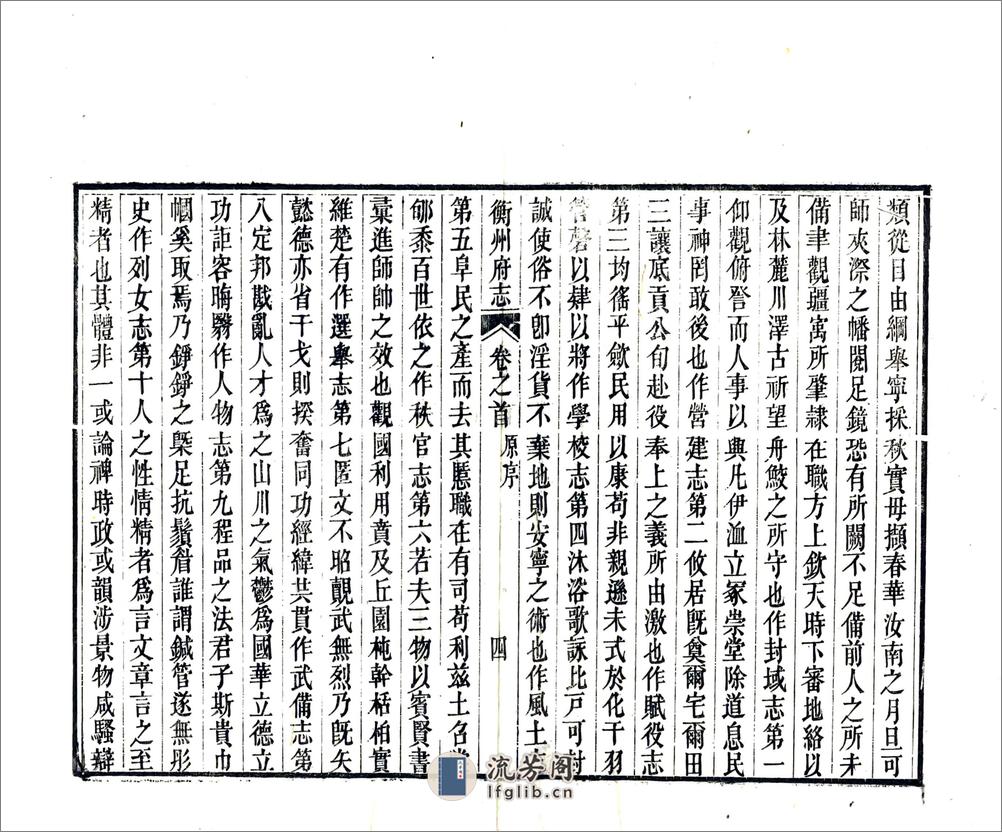 類從目由綱舉寧採秋實毋擷春華汝南之月旦可
師夾漈之幡閱足鏡恐有所闕不足備前人之所未
備聿觀疆㝢所肇隷在職方上欽天時下審地絡以
及林麓川澤古祈望舟鮫之所守也作封域志第一
仰觀俯詧而人事以興凡伊洫立冢崇堂除道息民
事神罔敢後也作營建志第二攸居旣奠爾宅爾田
三讓底貢公旬赴役奉上之義所由激也作賦役志
第三均徭平歛民用以康苟非親遜未式於化干羽
管磬以肄以將作學校志第四沐浴歌詠比戸可封
誠使俗不卽淫貨不棄地則安寧之術也作風土志
衡州府志 卷之首 原序 四
第五阜民之產而去其慝職在有司苟利茲土召棠
郇黍百世依之作秩官志第六若夫三物以賓賢書
彙進師師之效也觀國利用賁及丘園杶幹栝柏實
維楚有作選舉志第七匿文不昭覿武無烈乃旣矢
懿德亦省干戈則揆奮同功經緯共貫作武備志第
八定邦戡亂人才爲之山川之氣鬱爲國華立德立
功詎容晦翳作人物志第九程品之法君子斯貴巾
幗奚取焉乃錚錚之槩足抗鬚眉誰謂鍼管遂無彤
史作列女志第十人之性情精者爲言文章言之至
精者也其體非一或論裨時政或韻涉景物咸騷辯
流芳阁
lfglib.cn